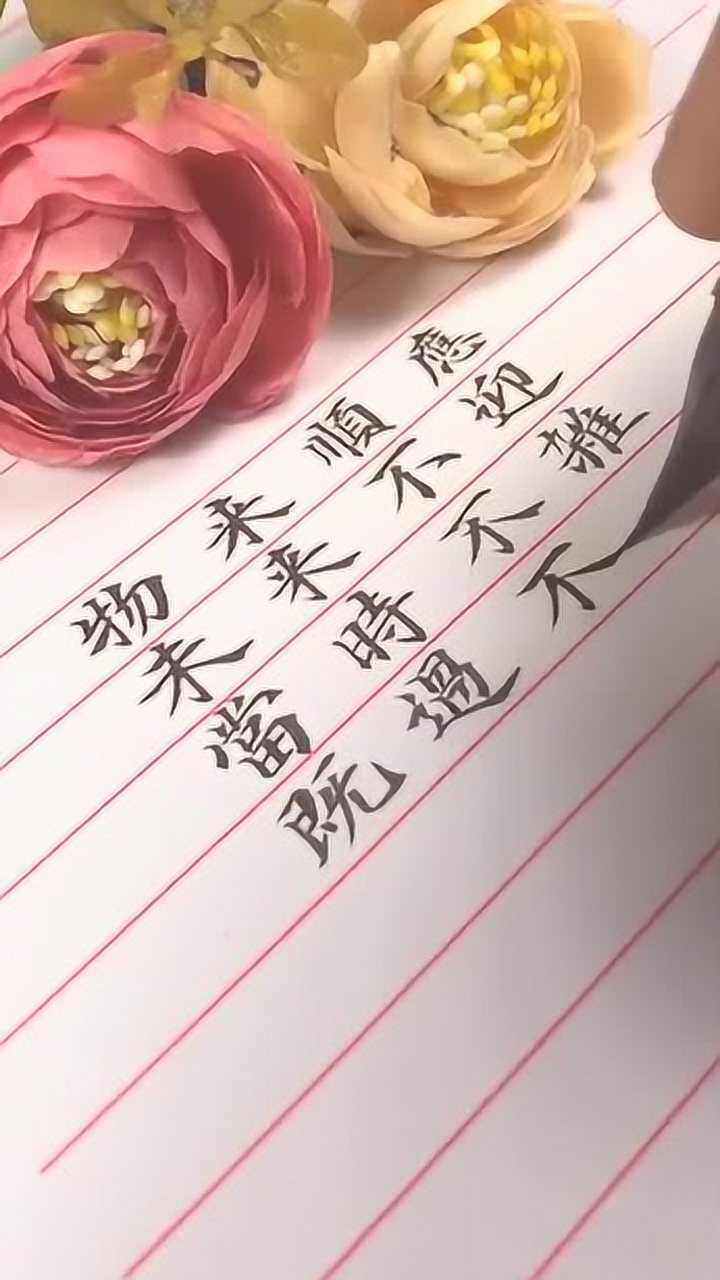 物来順應
未来不迎
當時不雜
既過不